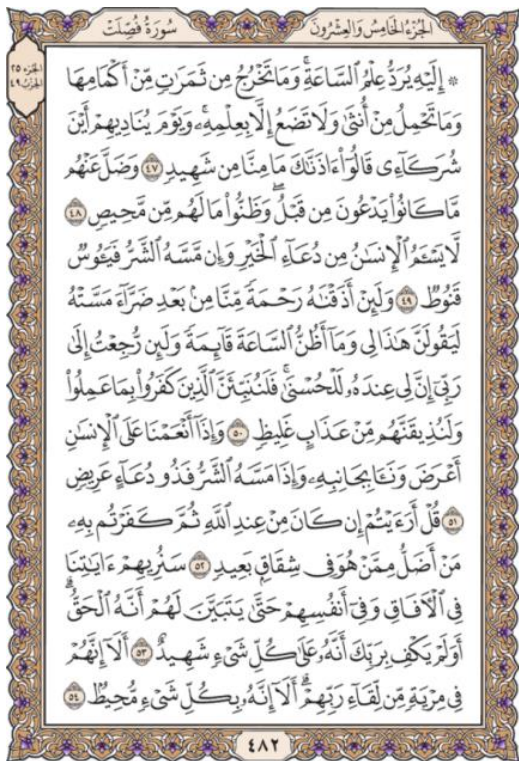 الجزء الخامس والعشرون
سورة فصلت
الجزء ٢٥
الحزب ٤٩
۞ إِلَيْهِ يُرَدُّ عِلْمُ ٱلسَّاعَةِۚ وَمَا تَخْرُجُ مِن ثَمَرَٰتٍ مِّنْ أَكْمَامِهَا
وَمَا تَحْمِلُ مِنْ أُنثَىٰ وَلَا تَضَعُ إِلَّا بِعِلْمِهِۦۚ وَيَوْمَ يُنَادِيهِمْ أَيْنَ
شُرَكَآءِى قَالُوٓا۟ ءَاذَنَّٰكَ مَا مِنَّا مِن شَهِيدٍ ٤٧ وَضَلَّ عَنْهُم
مَّا كَانُوا۟ يَدْعُونَ مِن قَبْلُۖ وَظَنُّوا۟ مَا لَهُم مِّن مَّحِيصٍ ٤٨
لَّا يَسْـَٔمُ ٱلْإِنسَٰنُ مِن دُعَآءِ ٱلْخَيْرِ وَإِن مَّسَّهُ ٱلشَّرُّ فَيَـُٔوسٌ
قَنُوطٌ ٤٩ وَلَئِنْ أَذَقْنَٰهُ رَحْمَةً مِّنَّا مِنۢ بَعْدِ ضَرَّآءَ مَسَّتْهُ
لَيَقُولَنَّ هَٰذَا لِى وَمَآ أَظُنُّ ٱلسَّاعَةَ قَآئِمَةً وَلَئِن رُّجِعْتُ إِلَىٰ
رَبِّىٓ إِنَّ لِى عِندَهُۥ لَلْحُسْنَىٰۚ فَلَنُنَبِّئَنَّ ٱلَّذِينَ كَفَرُوا۟ بِمَا عَمِلُوا۟
وَلَنُذِيقَنَّهُم مِّنْ عَذَابٍ غَلِيظٍ ٥٠ وَإِذَآ أَنْعَمْنَا عَلَى ٱلْإِنسَٰنِ
أَعْرَضَ وَنَـَٔا بِجَانِبِهِۦ وَإِذَا مَسَّهُ ٱلشَّرُّ فَذُو دُعَآءٍ عَرِيضٍ
٥١ قُلْ أَرَءَيْتُمْ إِن كَانَ مِنْ عِندِ ٱللَّهِ ثُمَّ كَفَرْتُم بِهِۦ
مَنْ أَضَلُّ مِمَّنْ هُوَ فِى شِقَاقٍۭ بَعِيدٍ ٥٢ سَنُرِيهِمْ ءَايَٰتِنَا
فِى ٱلْـَٔافَاقِ وَفِىٓ أَنفُسِهِمْ حَتَّىٰ يَتَبَيَّنَ لَهُمْ أَنَّهُ ٱلْحَقُّۗ
أَوَلَمْ يَكْفِ بِرَبِّكَ أَنَّهُۥ عَلَىٰ كُلِّ شَىْءٍ شَهِيدٌ ٥٣ أَلَآ إِنَّهُمْ
فِى مِرْيَةٍ مِّن لِّقَآءِ رَبِّهِمْۗ أَلَآ إِنَّهُۥ بِكُلِّ شَىْءٍ مُّحِيطٌۢ ٥٤
٤٨٢